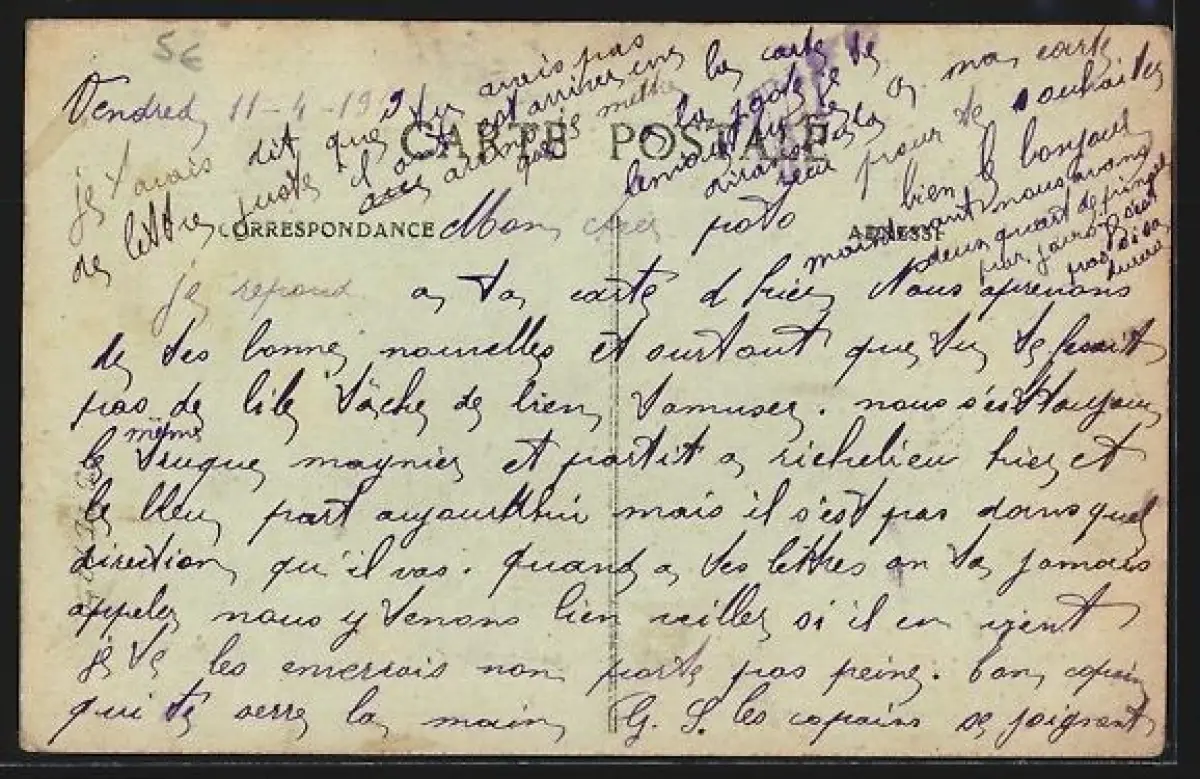 5€
Vendredi 11-4-19
CARTE POSTALE
CORRESPONDANCE
ADRESSE
Mon cher poto
je repond a ta carte d hier Nous aprenons
de tes bonne nouvelles et surtout que tu te
pas de bile tâche de bien tamuser. nous s'est toujour
le même truque maynier et partit a richelieu hier et
le bleu part aujourdhui mais il s'est pas dans quel
direction qu'il vas. quand a tes lettres on ta jamais
appeler nous y tenons bien veiller si il en vient
je te les enverrais non porte pas peine. ton copain
qui te serre la main G. S. les copains se joignent
je t'avais dit que tu avais pas
de lettre juste il est arriver une
que je mette
la carte de
a ma carte
pour te souhaiter
bien le bonjour
maintenant nous avons
deux quart de pinard
par jour